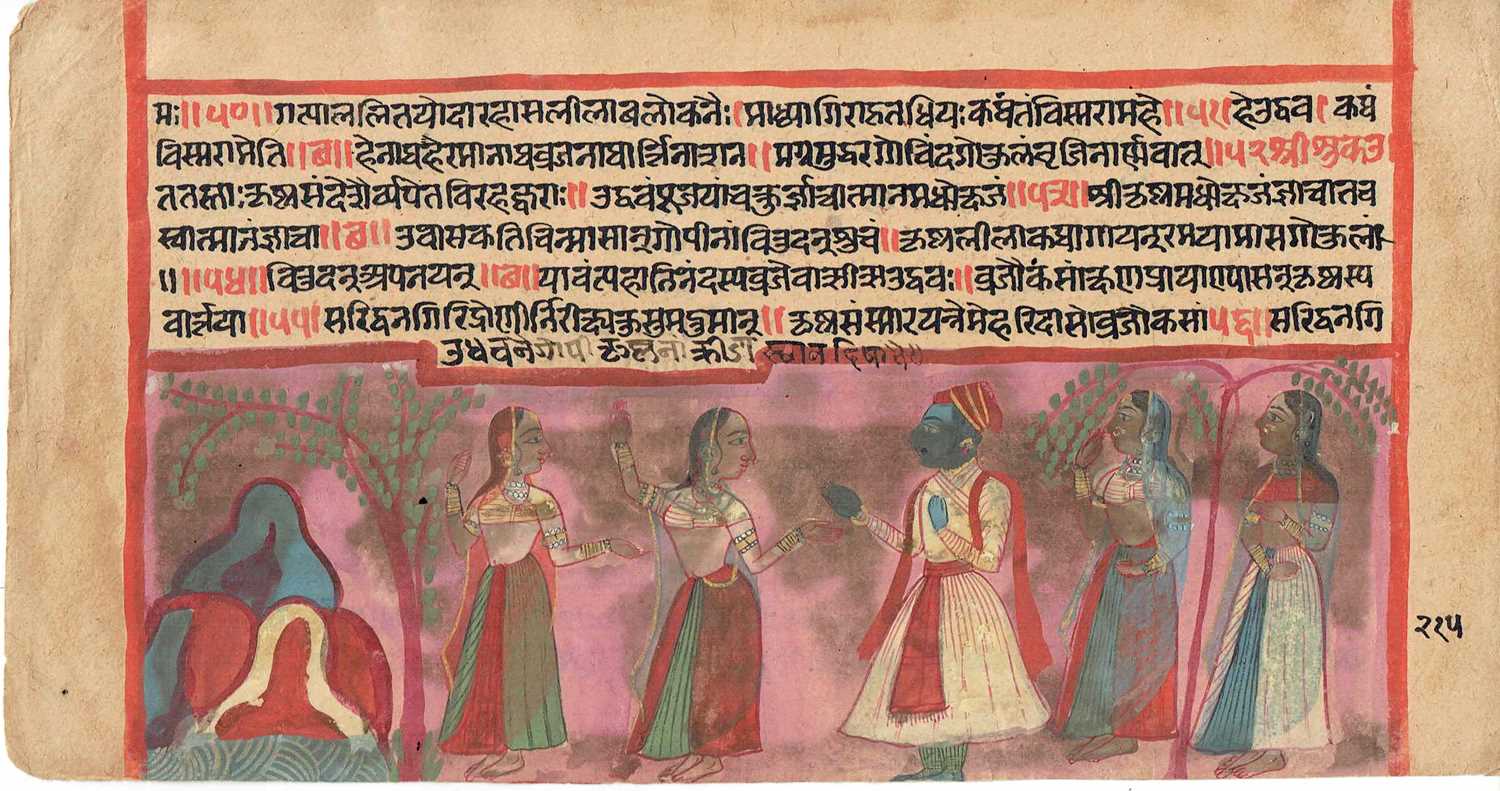 मः॥५०॥गत्याललितयोदारहासलीलावलोकनैः।माध्व्यागिराहृतधियःकथंतंविस्मरामहे॥५१॥हेउद्धव।कथं
विस्मरामेति॥छ॥हेनाथहेरमानाथव्रजनाथार्त्तिनाशन॥मग्नमुद्धरगोविंदगोकुलंवृजिनार्णवात्॥५२श्रीशुकउ
ततस्ताःकृष्णसंदेशैर्व्यपेतविरहज्वराः॥उद्धवंपूजयांचक्रुर्ज्ञात्वात्मानमधोक्षजं॥५३॥श्रीकृष्णमधोक्षजंज्ञात्वातंच
स्वात्मानंज्ञात्वा॥छ॥उवासकतिचिन्मासान्गोपीनांविनुदन्शुचं॥कृष्णलीलाकथागायन्रमयामासगोकुलं
॥॥५४॥विनुदन्अपनयन्॥छ॥यावंत्यहानिनंदस्यव्रजेवात्सीत्सउद्धवः॥व्रजौकसांक्षणप्रायाण्यासन्कृष्णस्य
वार्त्तया॥५५॥सरिद्वनगिरिद्रोणीर्निरीक्ष्यकुसुमद्रुमान्॥कृष्णसंस्मारयन्नेमेहरिदासोव्रजौकसां५६॥सरिद्वनगि
उधवनेगोपी कृष्णना क्रीडा स्थान
२१५